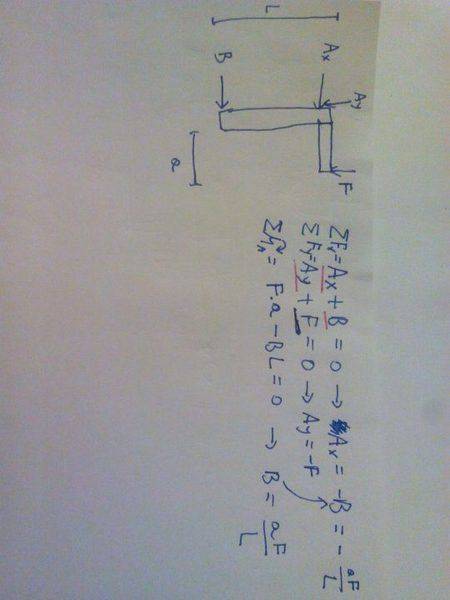 L
Ax
Ay
B
F
a
ΣFx = Ax + B = 0 → Ax = -B = - aF/L
ΣFy = Ay + F = 0 → Ay = -F
ΣM_A = F.a - BL = 0 → B = aF/L